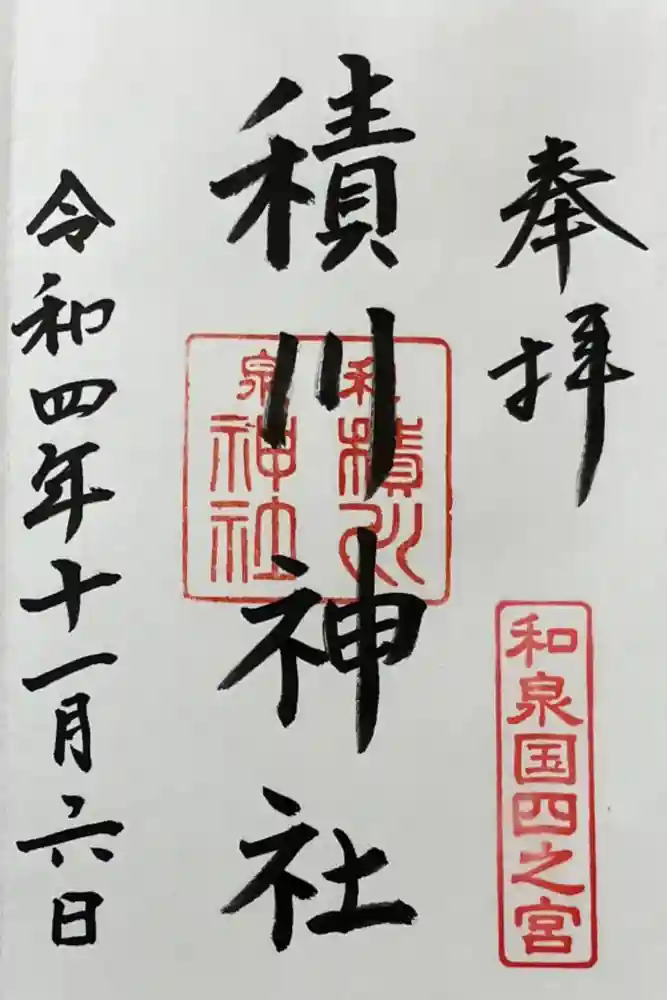 奉拝
和泉国四之宮
積川神社
和
積川
泉
神社
令和四年十一月六日